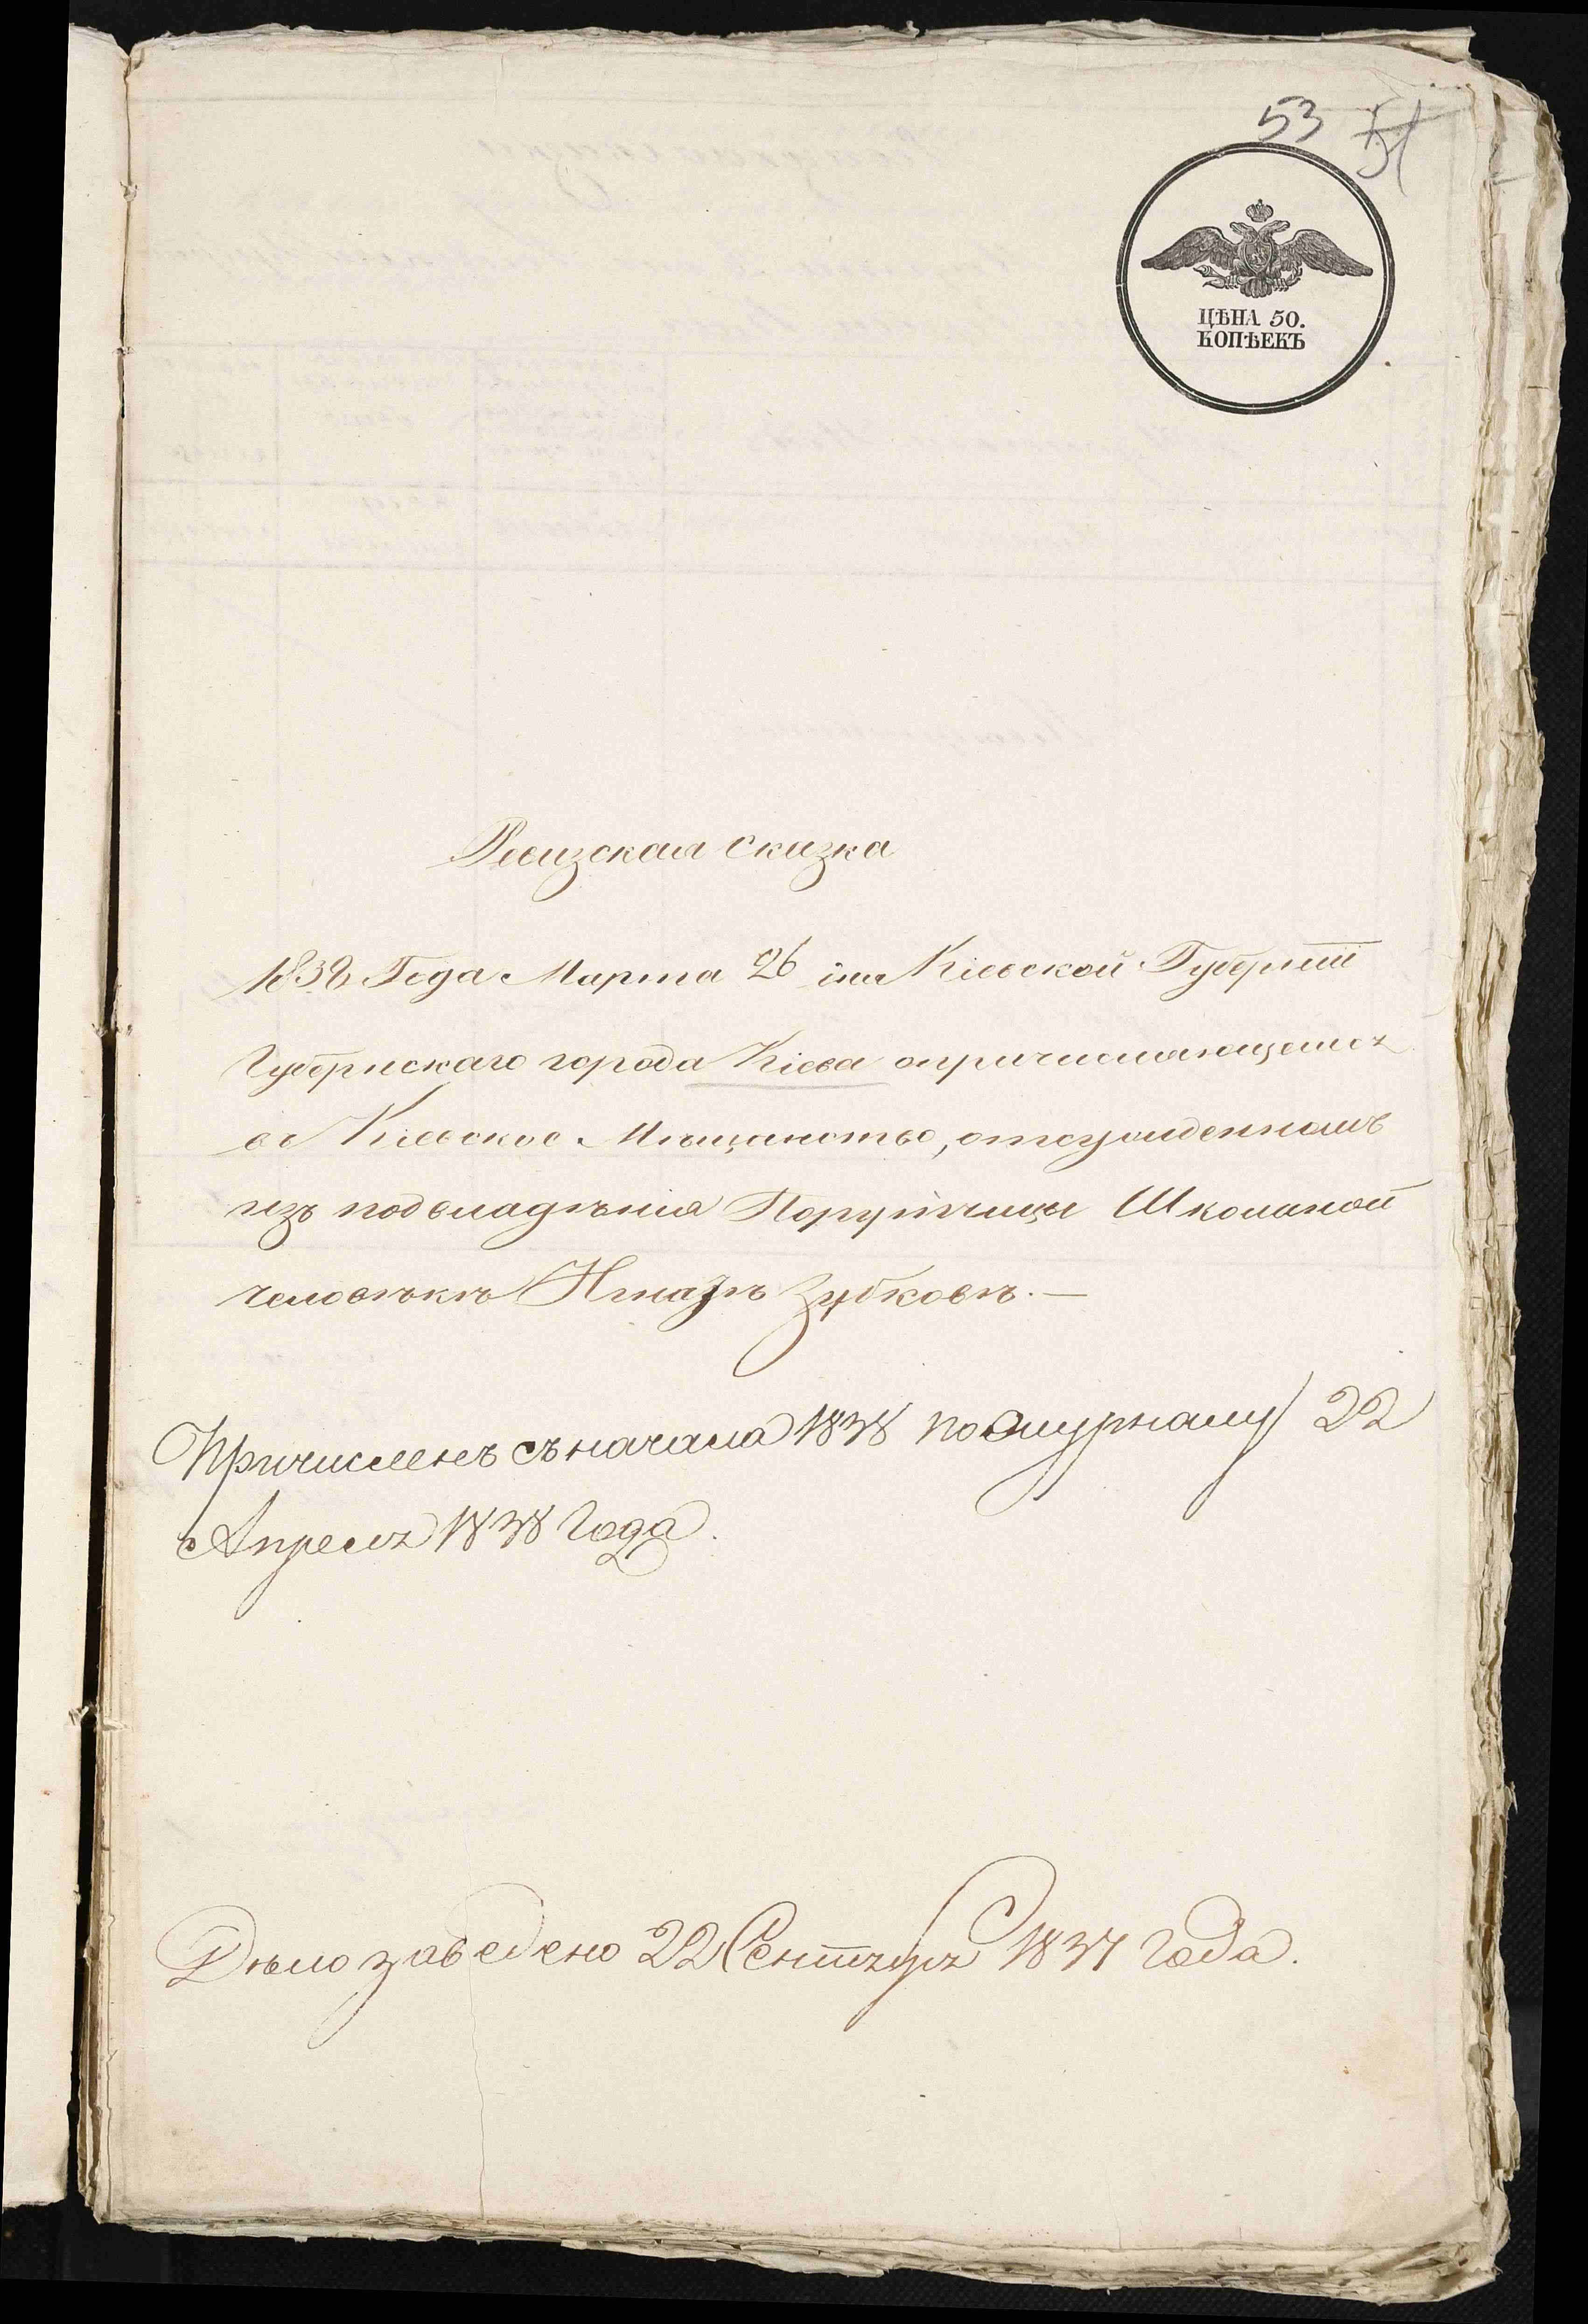 53 51
ЦѢНА 50.
КОПѢЕКЪ
Ревизская сказка
1838 Года Марта 26 дня Кіевской Губерніи
Губернскаго города Кіева опричисляющемся
въ Кіевское Мѣщанство, отсужденномъ
изъ подвладѣнія Порутчицы
человѣкѣ Игнатѣ Зубковѣ. —
Причисленъ съ начала 1838 по журналу 22
Апреля 1838 Года.
Дѣло заведено 22 Сентября 1837 года.